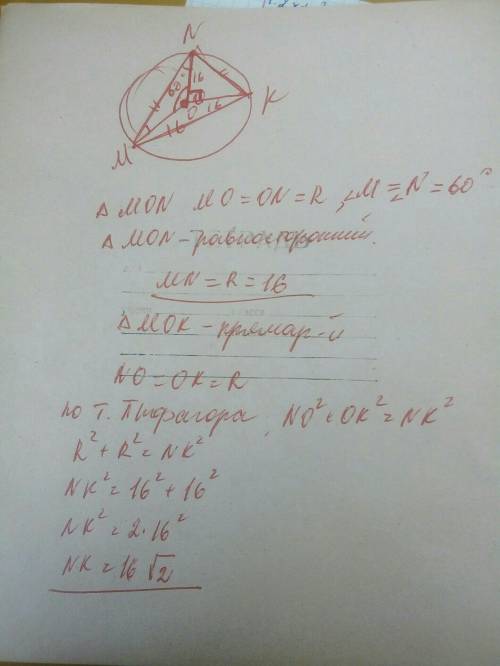 N
60°
16
16
16
O
K
M
△ MON MO = ON = R, ∠M = ∠N = 60°
△ MON - равносторонний.
MN = R = 16
△ MOK - прямоуг-й
NO = OK = R
по т. Пифагора, NO² + OK² = NK²
R² + R² = NK²
NK² = 16² + 16²
NK² = 2·16²
NK = 16 √2